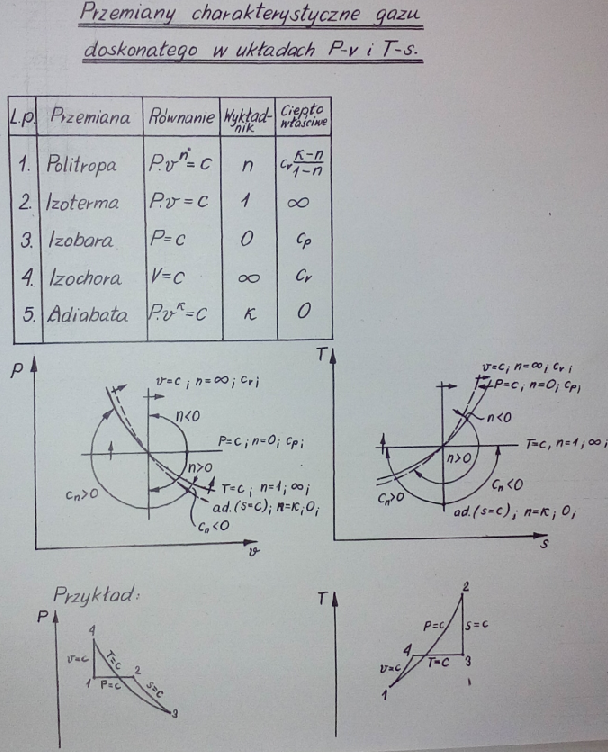 Przemiany charakterystyczne gazu
doskonałego w układach P-v i T-s.
L.p. Przemiana Równanie Wykład-nik Ciepło właściwe
1. Politropa P.vⁿ=c n cᵥ (κ-n)/(1-n)
2. Izoterma P.v=c 1 ∞
3. Izobara P=c 0 cₚ
4. Izochora V=c ∞ cᵥ
5. Adiabata P.v^κ=c κ 0
P
v=c; n=∞; cᵥ;
n<0
P=c; n=0; cₚ;
n>0
T=c; n=1; ∞;
cₙ>0
ad.(s=c); n=κ; 0;
cₙ<0
v
T
v=c, n=∞; cᵥ;
P=c, n=0; cₚ;
n<0
T=c, n=1, ∞;
n>0
cₙ>0
cₙ<0
ad.(s=c), n=κ, 0;
s
Przykład:
P
4
v=c
T=c
1
P=c
2
s=c
3
T
2
P=c
s=c
4
T=c
3
v=c
1